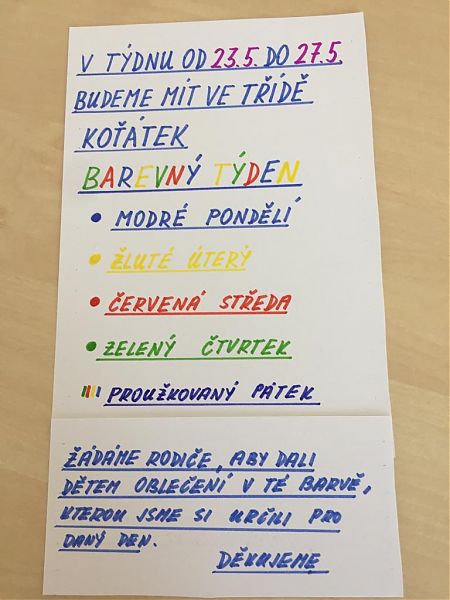 V TÝDNU OD 23.5. DO 27.5.
BUDEME MÍT VE TŘÍDĚ
KOŤÁTEK
BAREVNÝ TÝDEN
• MODRÉ PONDĚLÍ
• ŽLUTÉ ÚTERÝ
• ČERVENÁ STŘEDA
• ZELENÝ ČTVRTEK
PROUŽKOVANÝ PÁTEK
ŽÁDÁME RODIČE, ABY DALI
DĚTEM OBLEČENÍ V TÉ BARVĚ,
KTEROU JSME SI URČILI PRO
DANÝ DEN.
DĚKUJEME